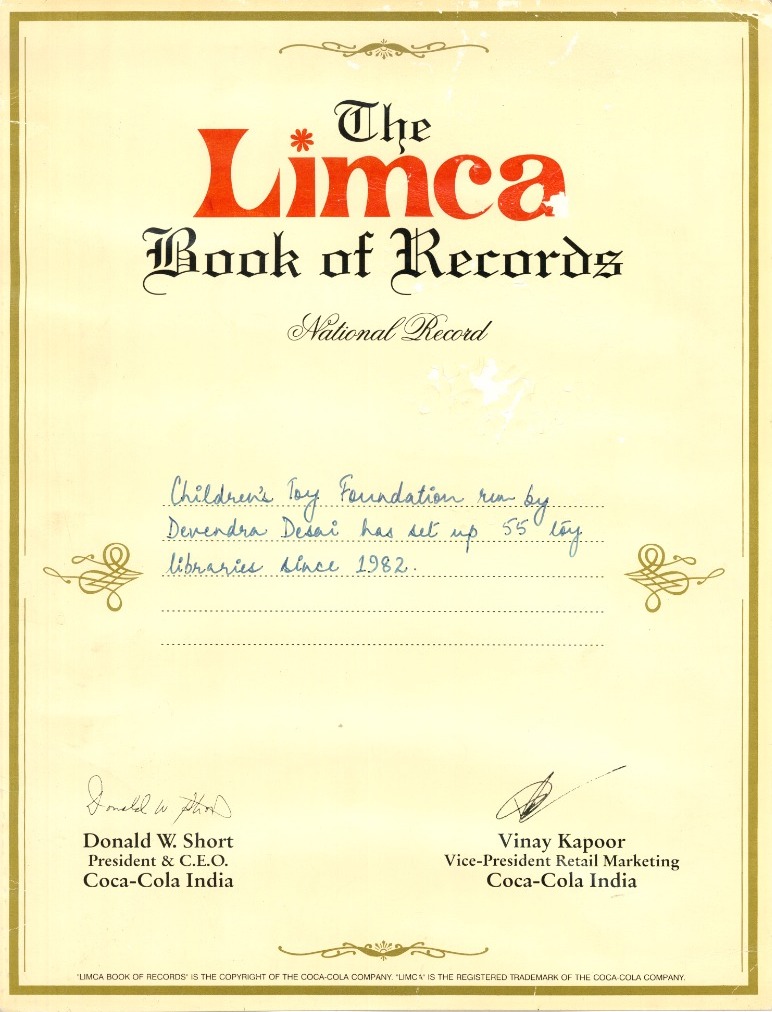 The
Limca
Book of Records
National Record
Children's Toy Foundation run by
Devendra Desai has set up 55 toy
libraries since 1982.
Donald W Short
Donald W. Short
President & C.E.O.
Coca-Cola India
Vinay Kapoor
Vice-President Retail Marketing
Coca-Cola India
"LIMCA BOOK OF RECORDS" IS THE COPYRIGHT OF THE COCA-COLA COMPANY. "LIMCA" IS THE REGISTERED TRADEMARK OF THE COCA-COLA COMPANY.